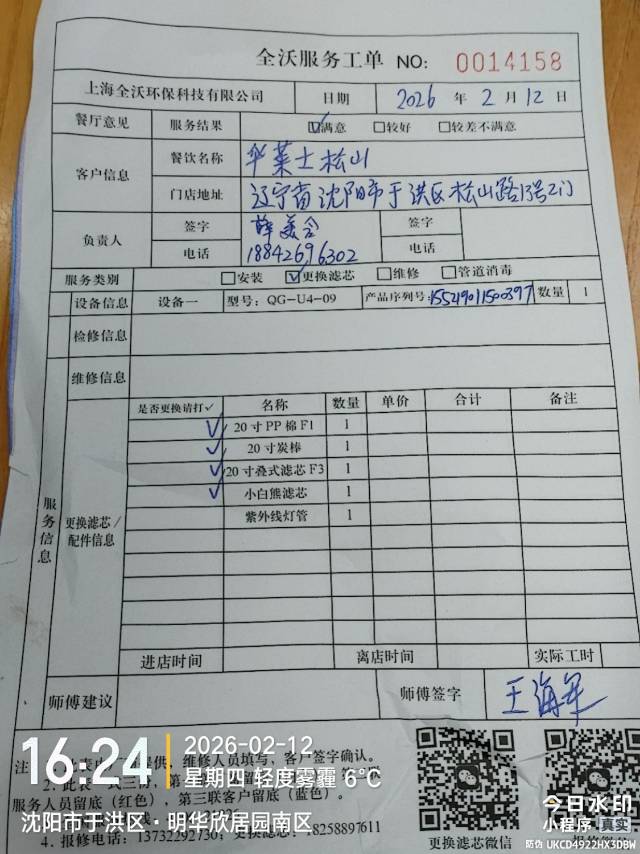 全沃服务工单 NO: 0014158
上海全沃环保科技有限公司 日期 2026 年 2 月 12 日
餐厅意见 服务结果 ☑满意 □较好 □较差不满意
客户信息 餐饮名称 华莱士松山
门店地址 辽宁省沈阳市于洪区松山路13号2门
负责人 签字 签字
电话 18842696302 电话
服务类别 □安装 ☑更换滤芯 □维修 □管道消毒
设备信息 设备一 型号: QG-U4-09 产品序列号: 数量 1
检修信息
维修信息
服务信息 更换滤芯/配件信息
是否更换请打✓ 名称 数量 单价 合计 备注
✓ 20寸PP棉F1 1
✓ 20寸炭棒 1
✓ 20寸叠式滤芯F3 1
✓ 小白熊滤芯 1
紫外线灯管 1
进店时间 离店时间 实际工时
师傅建议 师傅签字 王海军
提供,维修人员填写,客户签字确认。
服务人员留底(红色),第三联客户留底(蓝色)。
4. 报修电话: 13732292730; 18258897611
更换滤芯微信
16:24
2026-02-12
星期四 轻度雾霾 6℃
沈阳市于洪区·明华欣居园南区
今日水印
小程序 真实
防伪 UKCD4922HX3DBW